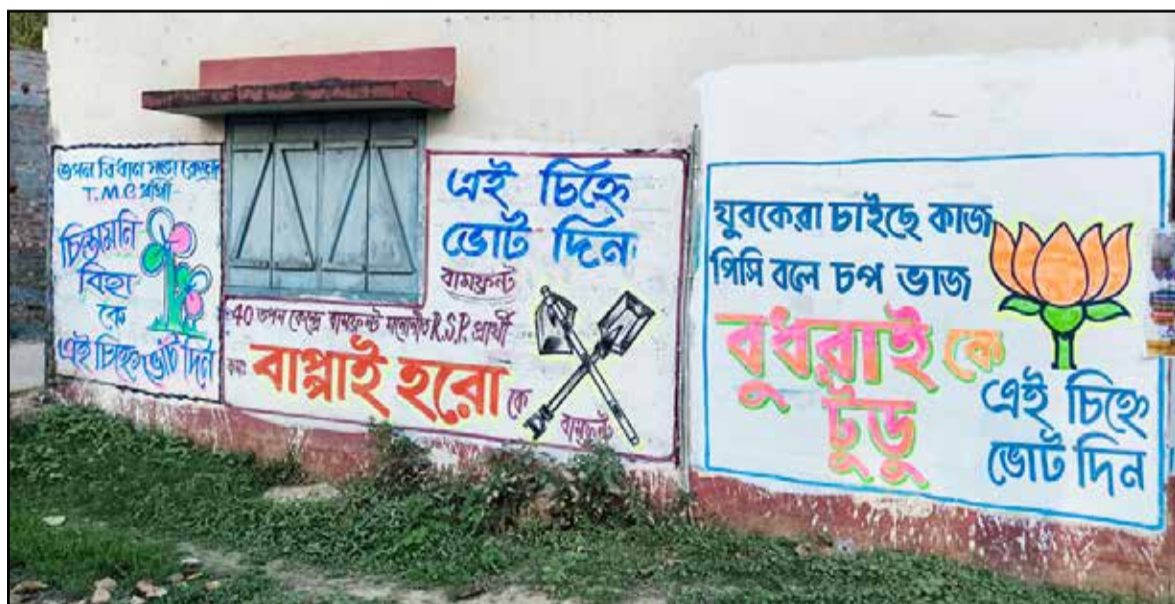 তপন বিধান সভা কেন্দ্রে
T.M.C প্রার্থী
চিন্তামনি
বিহা
কে
এই চিহ্নে ভোট দিন
এই চিহ্নে
ভোট দিন
বামফ্রন্ট
40 তপন কেন্দ্রে বামফ্রন্ট মনোনীত R.S.P. প্রার্থী
কমঃ বাপ্পাই হরো কে
বামফ্রন্ট
যুবকেরা চাইছে কাজ
পিসি বলে চপ ভাজ
বুধরাই কে
টুডু
এই চিহ্নে
ভোট দিন